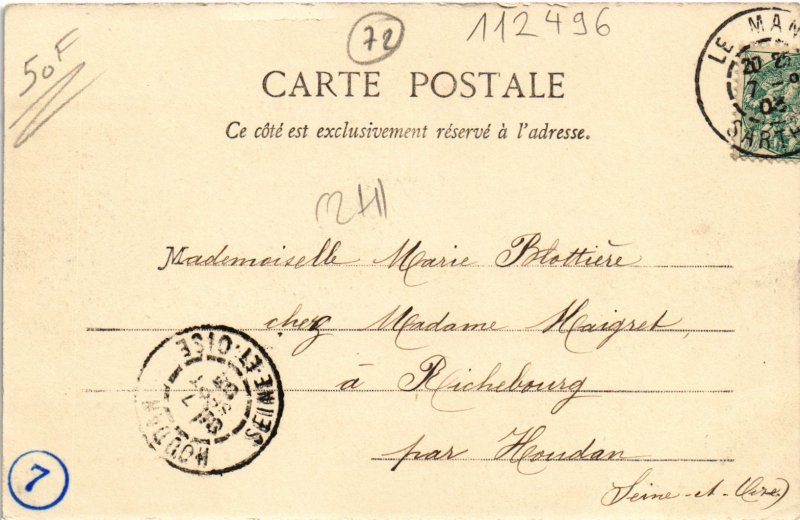 50F
72
112496
LE MAN
SARTHE
CARTE POSTALE
Ce côté est exclusivement réservé à l'adresse.
Mademoiselle Marie Blottière
chez Madame Maigret,
à Richebourg
par Houdan
(Seine-et-Oise)
HOUDAN
SEINE-ET-OISE
7